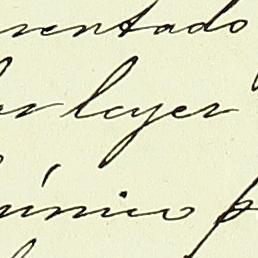 rentado
or leyes
único p